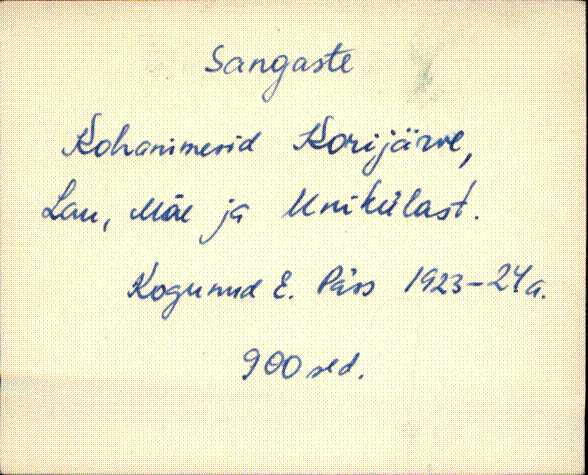 Sangaste
Kohanimesid Korijärve,
Lau, Mäe ja Unikülast.
Kogunud E. Päss 1923-24a.
900 sed.